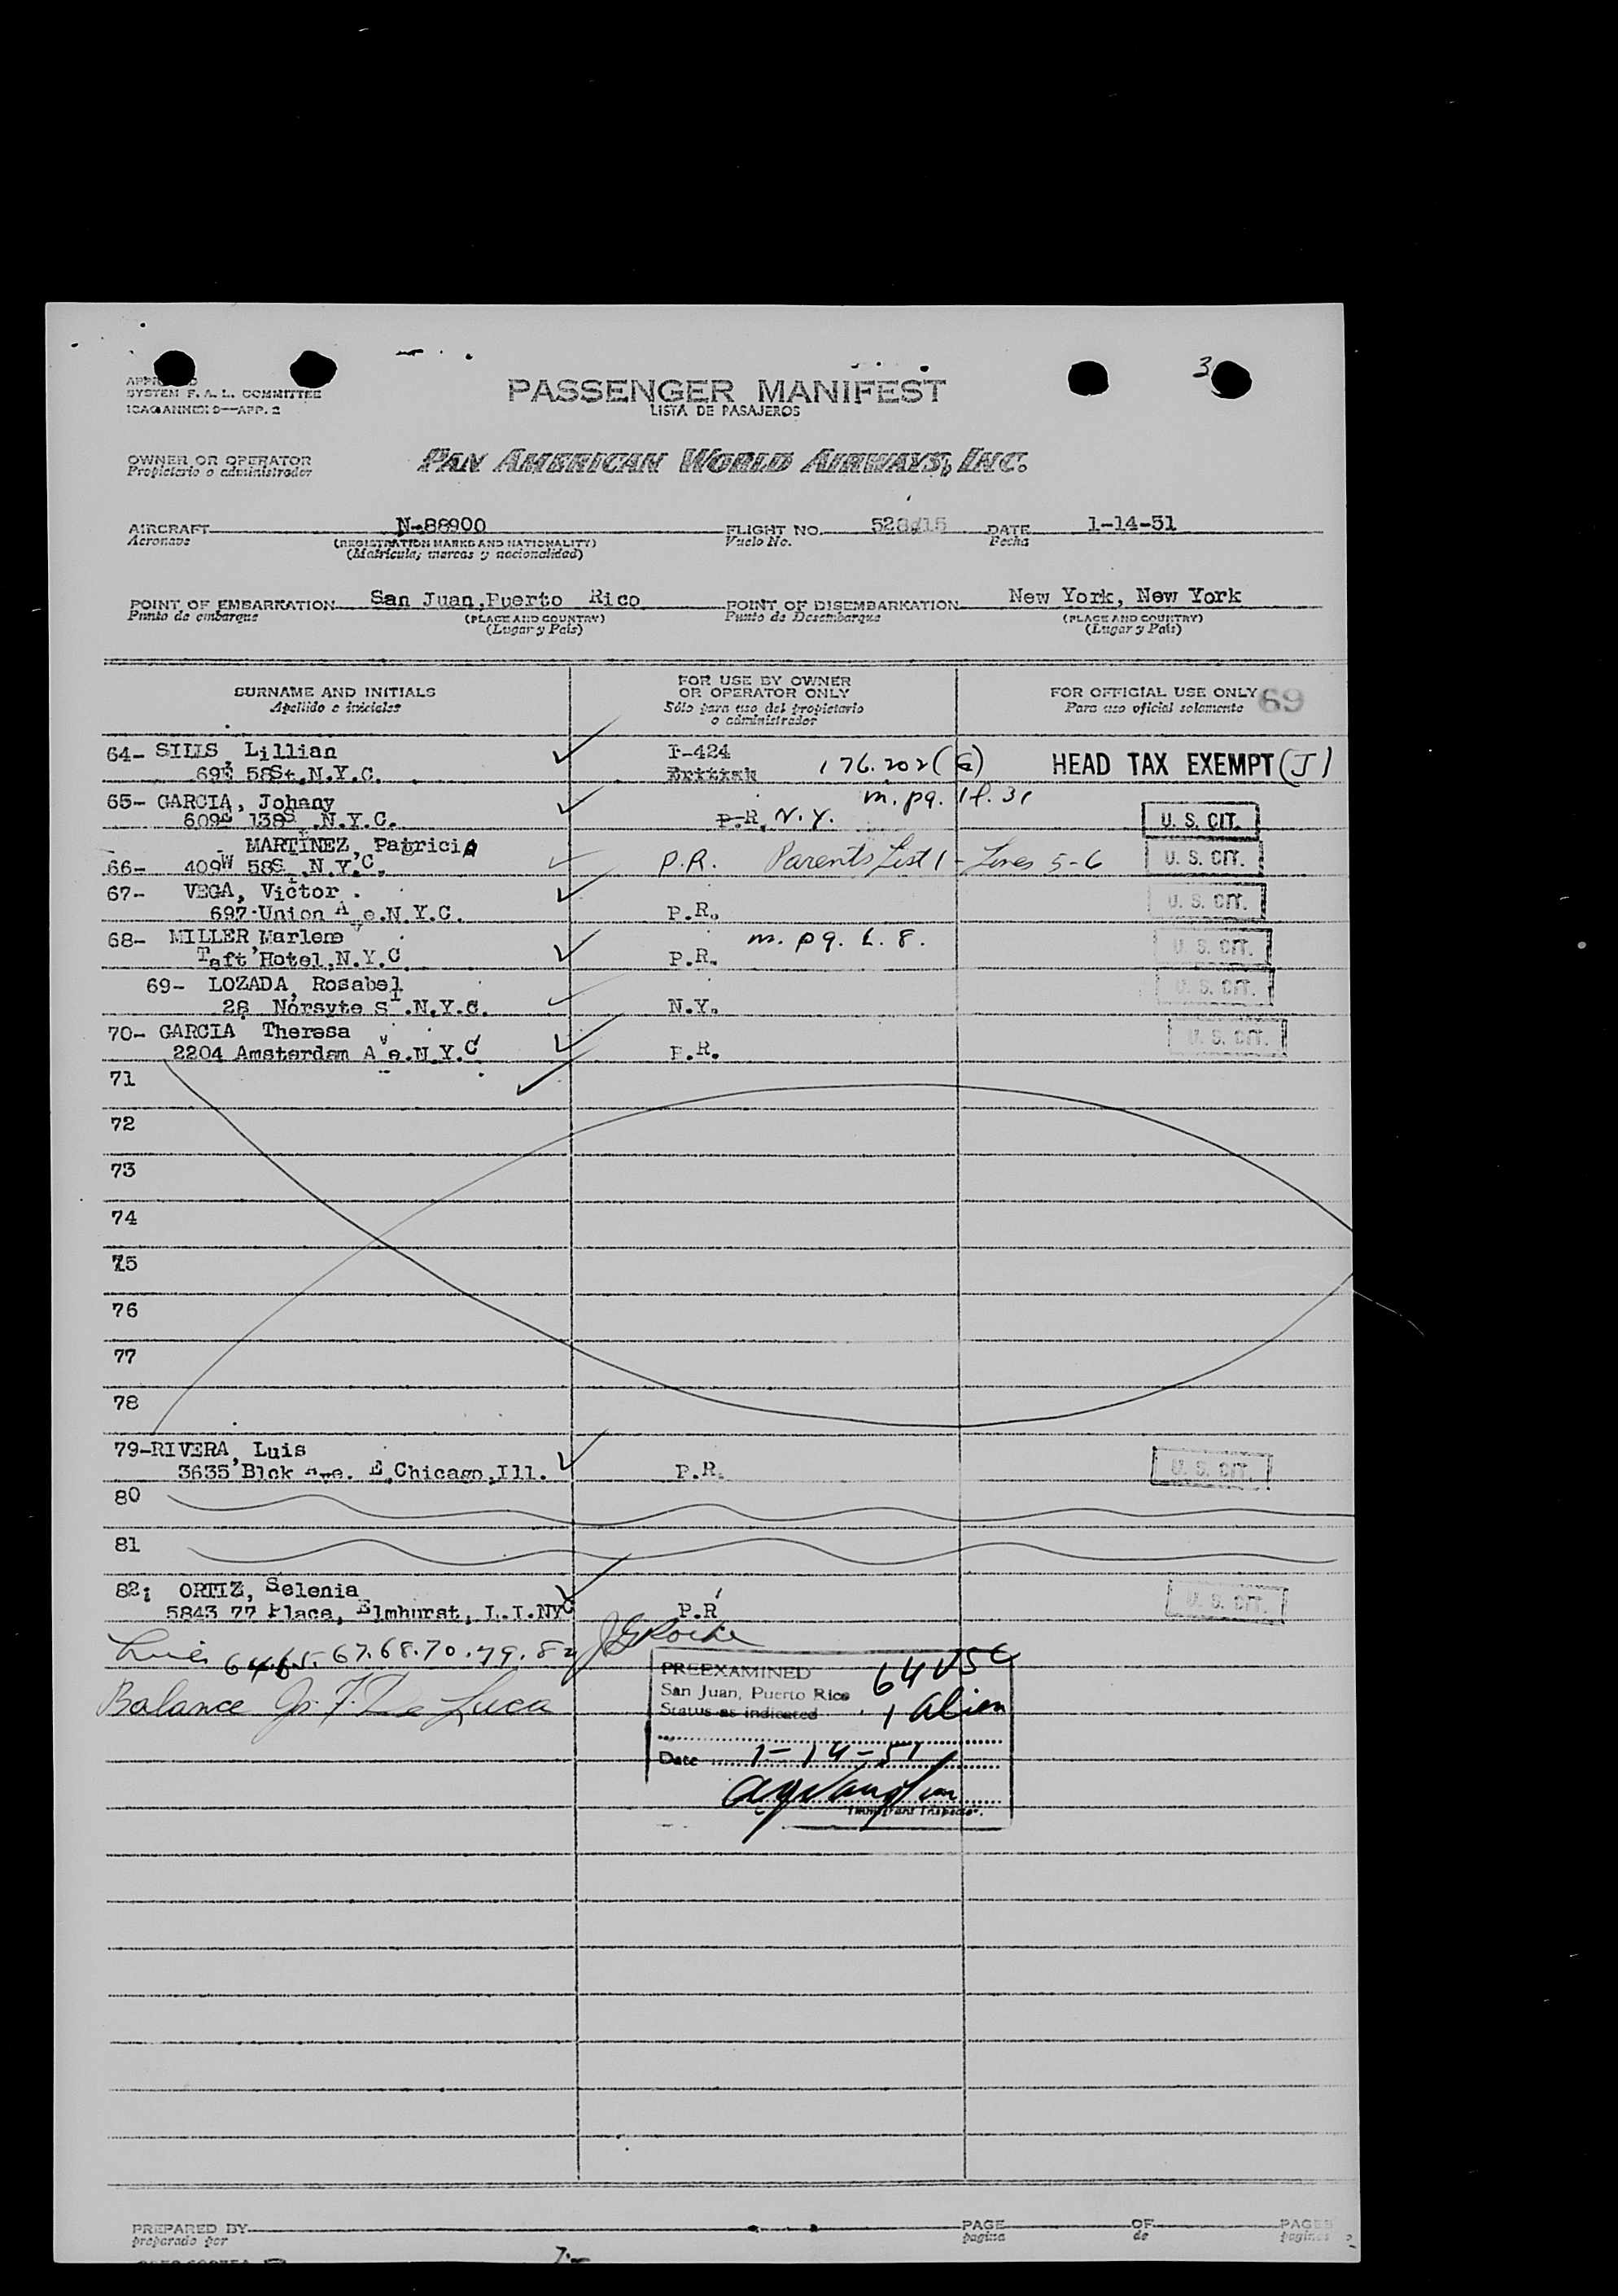 3
APPROVED
SYSTEM F. A. L. COMMITTEE
ICAO ANNEX 9—APP. 2
PASSENGER MANIFEST
LISTA DE PASAJEROS
OWNER OR OPERATOR
Propietario o administrador
PAN AMERICAN WORLD AIRWAYS, INC.
AIRCRAFT N-88900 FLIGHT NO. 528 DATE 1-14-51
Aeronave (REGISTRATION MARKS AND NATIONALITY) Vuelo No. Fecha
(Matrícula, marcas y nacionalidad)
POINT OF EMBARKATION San Juan, Puerto Rico POINT OF DISEMBARKATION New York, New York
Punto de embarque (PLACE AND COUNTRY) Punto de Desembarque (PLACE AND COUNTRY)
(Lugar y País) (Lugar y País)
SURNAME AND INITIALS
Apellido e iniciales
FOR USE BY OWNER
OR OPERATOR ONLY
Sólo para uso del propietario
o administrador
FOR OFFICIAL USE ONLY 69
Para uso oficial solamente
64- SILLS, Lillian I-424
69E 58St.N.Y.C. British 176.202(a) HEAD TAX EXEMPT (J)
65- GARCIA, Johany m. pg. 1 l. 31
609E 138S .N.Y.C. P.R. N.Y. U. S. CIT.
MARTINEZ, Patricia
66- 409W 58S .N.Y.C. P.R. Parents List 1 - Lines 5-6 U. S. CIT.
67- VEGA, Victor
697 Union Ave.N.Y.C. P.R. U. S. CIT.
68- MILLER Marlene m. pg. l. 8.
Taft Hotel,N.Y.C. P.R. U. S. CIT.
69- LOZADA, Rosabel
28 Norsyte St.N.Y.C. N.Y. U. S. CIT.
70- GARCIA, Theresa
2204 Amsterdam Ave.N.Y.C. P.R. U. S. CIT.
71
72
73
74
75
76
77
78
79-RIVERA, Luis
3635 Blck Ave. E,Chicago,Ill. P.R. U. S. CIT.
80
81
82; ORTIZ, Selenia
5843 77 Place, Elmhurst, L.I.NYC P.R U. S. CIT.
64 65 67.68.70.79.82
Balance
PREEXAMINED 64 USC
San Juan, Puerto Rico
Status as indicated 1 Alien
Date 1-14-51
Immigrant Inspector.
PREPARED BY PAGE OF PAGES
preparado por pagina de paginas